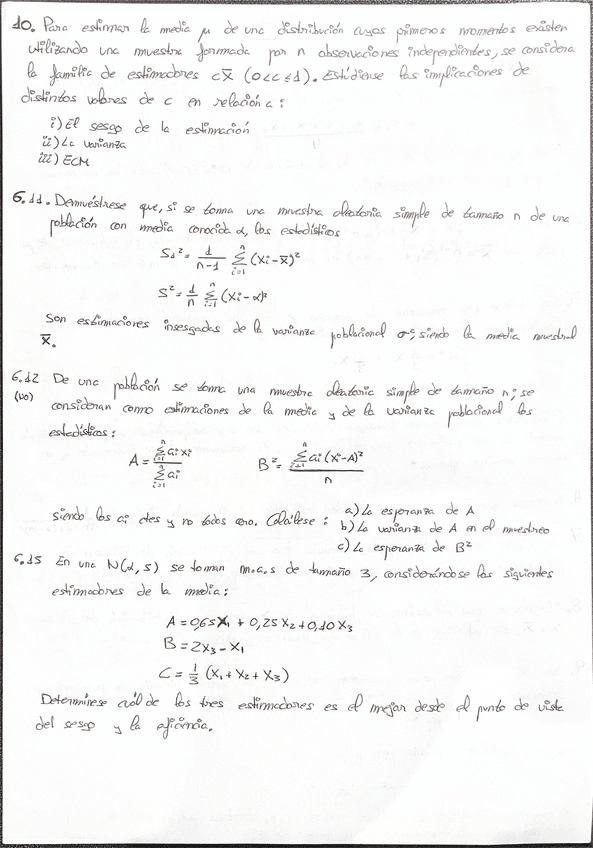 10. Para estimar la media μ de una distribución cuyos primeros momentos existen
utilizando una muestra formada por n observaciones independientes, se considera
la familia de estimadores cX̄ (0<c≤1). Estúdiense las implicaciones de
distintos valores de c en relación a:
i) El sesgo de la estimación
ii) La varianza
iii) ECM
6.11. Demuéstrese que, si se toma una muestra aleatoria simple de tamaño n de una
población con media conocida α, los estadísticos
S₁² = 1/(n-1) Σᵢ₌₁ⁿ (Xi - X̄)²
S² = 1/n Σᵢ₌₁ⁿ (Xi - α)²
Son estimaciones insesgadas de la varianza poblacional σ², siendo la media muestral
X̄.
6.12 De una población se toma una muestra aleatoria simple de tamaño n; se
(no) consideran como estimaciones de la media y de la varianza poblacional los
estadísticos:
A = Σᵢ₌₁ⁿ ai xi / Σᵢ₌₁ⁿ ai B² = Σᵢ₌₁ⁿ ai (xi - A)² / n
siendo los ai ctes y no todos cero. Calcúlese: a) La esperanza de A
b) La varianza de A en el muestreo
c) La esperanza de B²
6.15 En una N(α, s) se toman m.a.s de tamaño 3, considerándose los siguientes
estimadores de la media:
A = 0,65X₁ + 0,25X₂ + 0,10X₃
B = 2X₃ - X₁
C = 1/3 (X₁ + X₂ + X₃)
Determínese cuál de los tres estimadores es el mejor desde el punto de vista
del sesgo y la eficiencia.